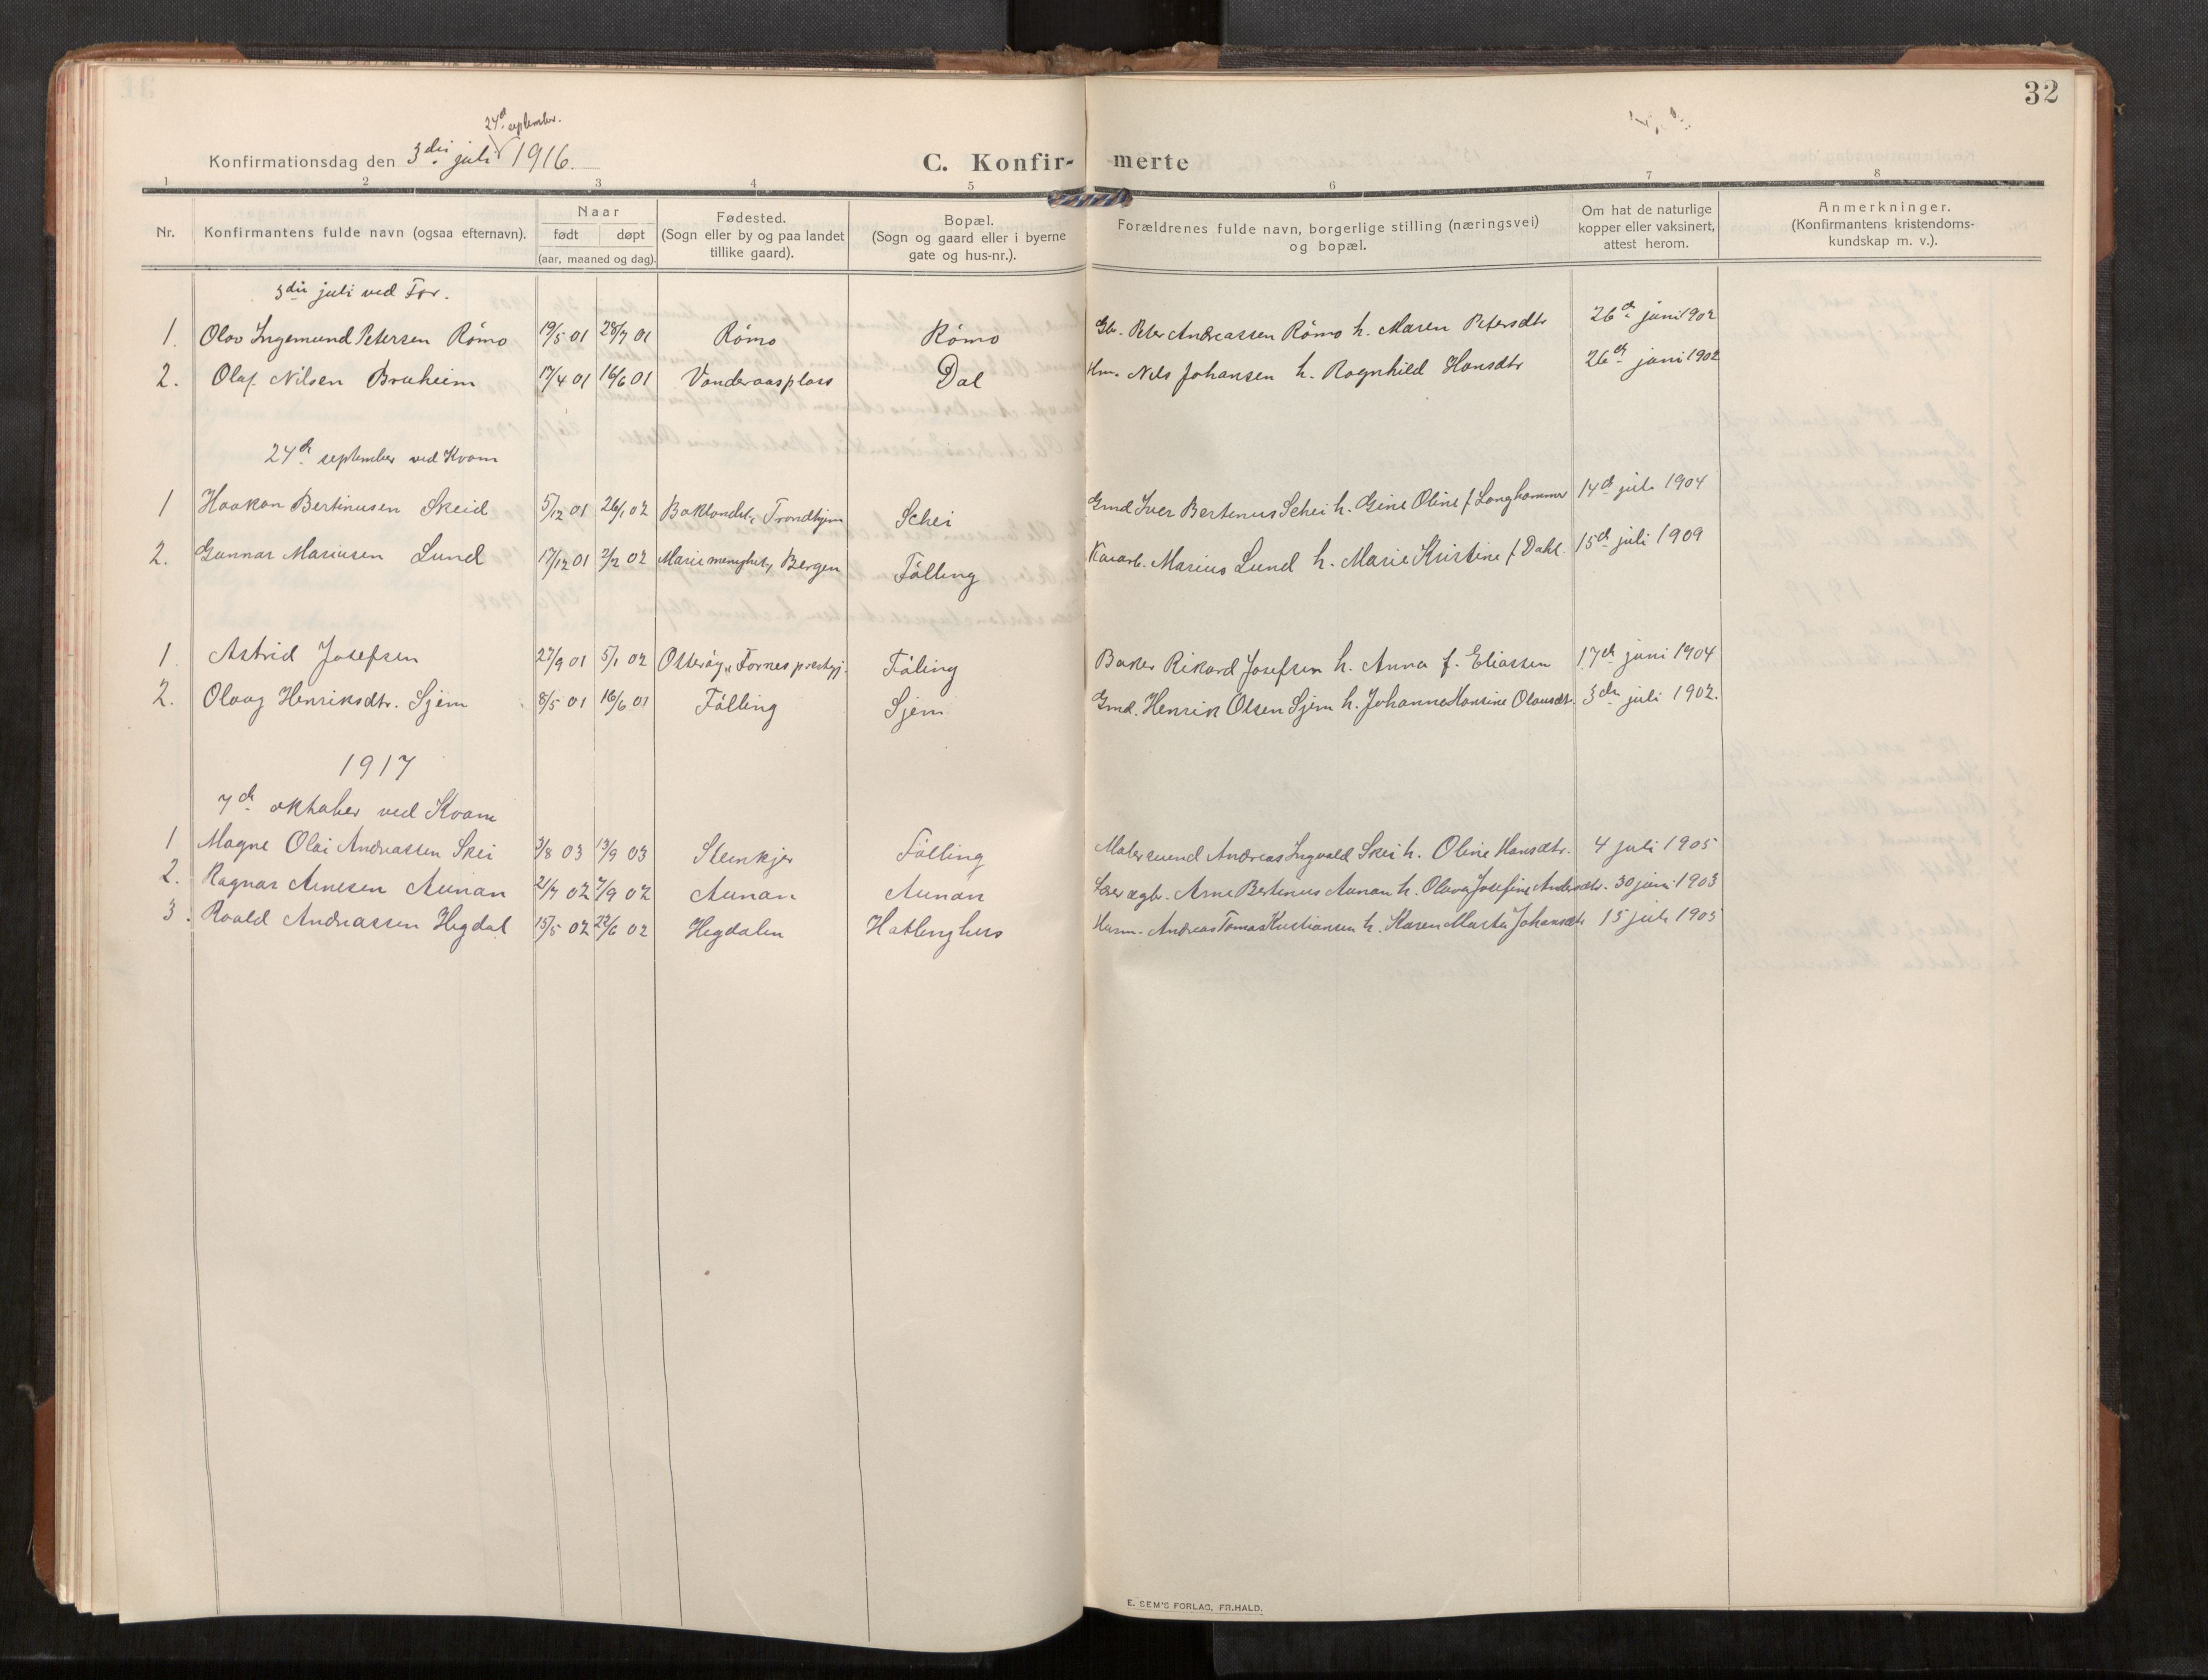 32
24d september.
Konfirmationsdag den 3die juli 1916.
C. Konfir- merte
1 2 3 4 5 6 7 8
Nr.
Konfirmantens fulde navn (ogsaa efternavn).
Naar
født døpt
(aar, maaned og dag).
Fødested.
(Sogn eller by og paa landet
tillike gaard).
Bopæl.
(Sogn og gaard eller i byerne
gate og hus-nr.).
Forældrenes fulde navn, borgerlige stilling (næringsvei)
og bopæl.
Om hat de naturlige
kopper eller vaksinert,
attest herom.
Anmerkninger.
(Konfirmantens kristendoms-
kundskap m. v.).
3die juli ved For.
1. Olav Ingemund Petersen Rømo 19/5 01 28/7 01 Rømo Rømo Gbr. Peter Andreassen Rømo h. Maren Petersdtr 26de juni 1902
2. Olaf Nilsen Bruheim 17/4 01 16/6 01 Vanderaasplass Dal Hm. Nils Johansen h. Ragnhild Hansdtr 26de juni 1902
24de september ved Kvam
1 Haakon Bertinusen Skeid 5/12 01 26/1 02 Baklandet, Trondhjem Schei Gmd Iver Bertenus Schei h. Gine Oline f. Langhammer 14de juli 1904
2. Gunnar Mariusen Lund 17/12 01 2/2 02 Marie menighet, Bergen Følling Marius Lund h. Marie Kristine f. Dahl. 15de juli 1909
1 Astrid Josefsen 27/9 01 5/1 02 Otterøy, Fornes prestgj. Føling Baker Rikard Josefsen h. Anna f. Eliassen 17de juni 1904
2. Olaug Henriksdtr. Sjem 8/5 01 16/6 01 Følling Sjem Gmd. Henrik Olsen Sjem h. Johanna Hansine Olausdtr. 3die juli 1902.
1917
7de oktober ved Kvam
1 Magne Olai Andreassen Skei 3/8 03 13/9 03 Steinkjer Følling Malersvend Andreas Ingvald Skei h. Oline Hansdtr. 4 juli 1905
2. Ragnar Arnesen Aunan 21/7 02 7/9 02 Aunan Aunan Arne Bertenus Aunan h. Olava Josefine Andersdtr. 30 juni 1903
3. Roald Andreassen Hegdal 15/5 02 22/6 02 Hegdalen Hatlinghus Husm. Andreas Tomas Kristiansen h. Karen Marta Johansdtr 15 juli 1905
E. SEM'S FORLAG, FR.HALD.